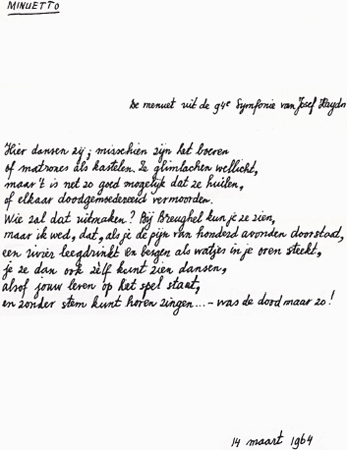 MINUETTO
De menuet uit de 94e Symfonie van Josef Haydn
Hier dansen zij; misschien zijn het boeren
of matrozes als kastelen. Ze glimlachen wellicht,
maar 't is net zo goed mogelijk dat ze huilen,
of elkaar doodgemoedereerd vermoorden.
Wie zal dat uitmaken? Bij Breughel kun je ze zien,
maar ik wed, dat, als je de pijn van honderd avonden doorstaat,
een rivier leegdrinkt en bergen als watjes in je oren steekt,
je ze dan ook zèlf kunt zien dansen,
alsof jouw leven op het spel staat,
en zonder stem kunt horen zingen... - was de dood maar zo!
14 maart 1964